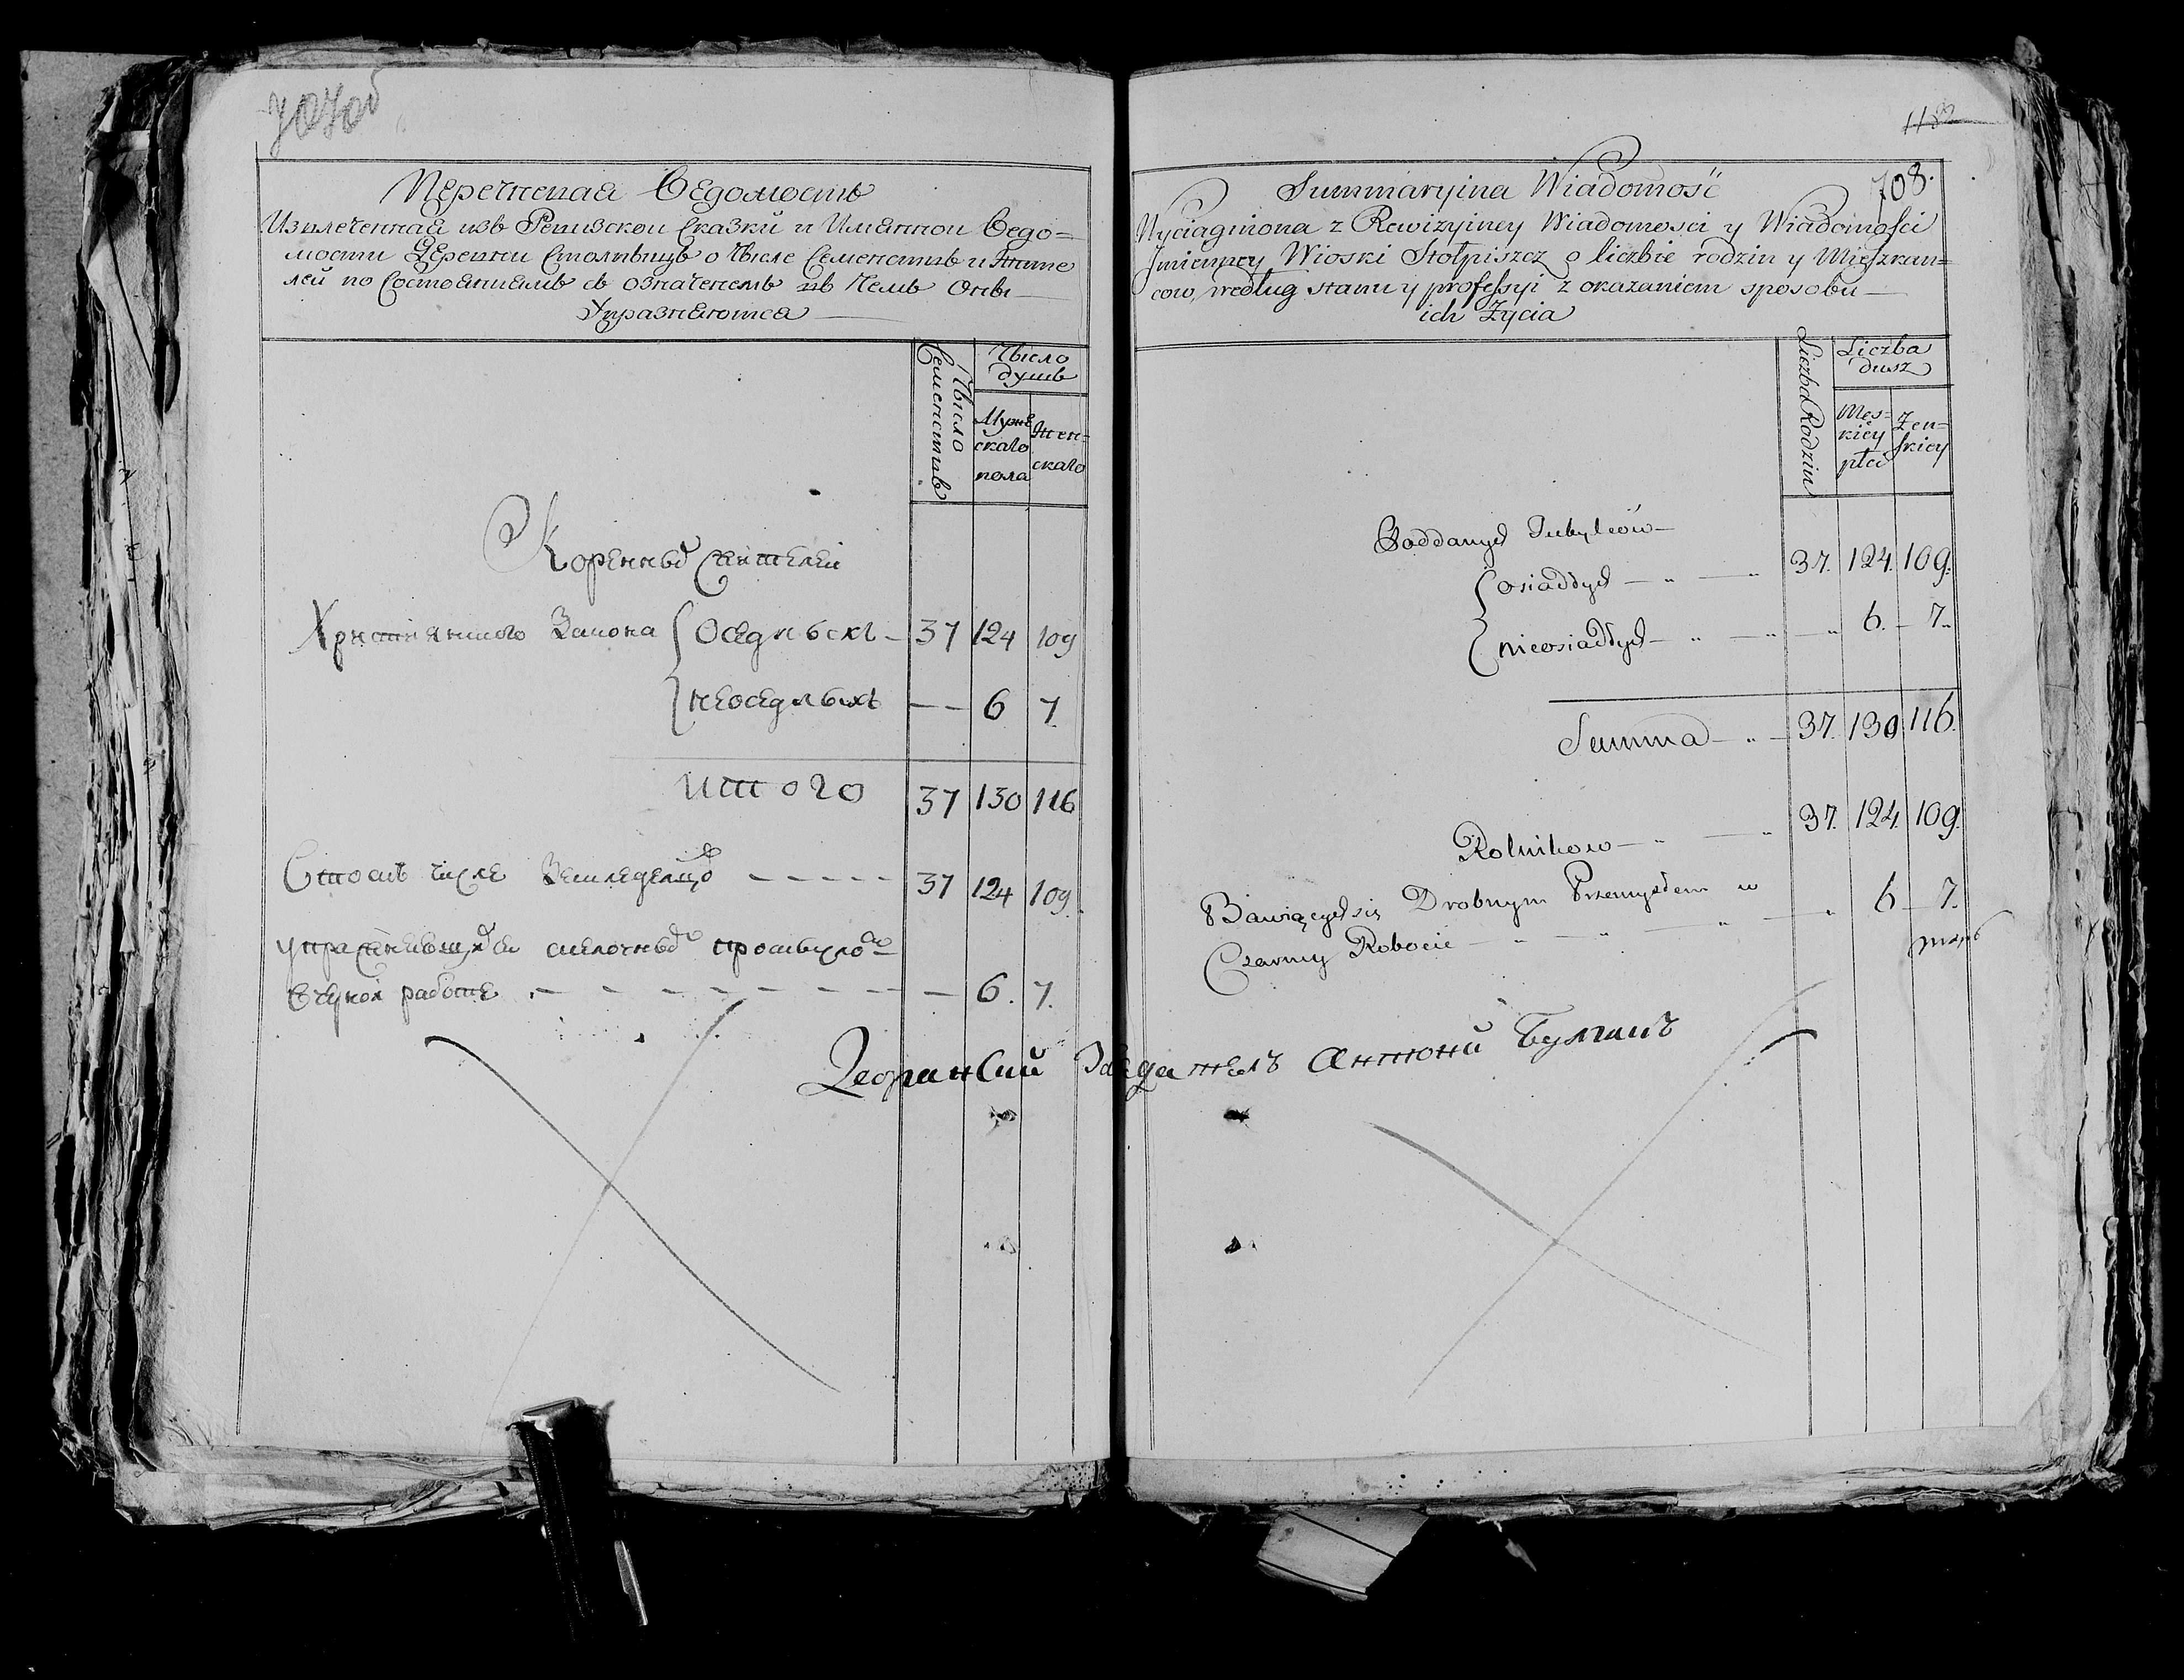 707об
Перечневая Ведомость
Извлеченная изъ Ревизской Сказки и Имянной Ведо=
мости Деревни Столпищъ о Числе Семействъ и Жите
лей по Состояниямъ съ означениемъ въ Чемъ Онѣ
Упразняются
Число Семействъ
Число душъ
Мужескаго пола
Женскаго
Коренныхъ Жителей
Християнского Закона
Оседлыхъ - 37 124 109
неоседлыхъ - - 6 7.
Итого 37 130 116
Втомъ числе Земледелцовъ - - - - - 37 124 109.
упражняющихся мелочнымъ промысломъ
Вчерной работе - - - - - - - - 6. 7.
118
708.
Summaryina Wiadomość
Wyciągniona z Rewizyiney Wiadomosci y Wiadomosci
Jmienney Wioski Stołpiszcz o liczbie rodzin y Mieszkan=
cow, według stanu y professyi z okazaniem sposobu
ich Życia
Liczba Rodzin
Liczba dusz
Męs=kiey płci
Żen=skiey
Poddanych Tubylców
osiadłych - „ - „ 37. 124. 109.
nieosiadłych - „ - „ - „ 6. - 7.
Summa - „ - 37. 130 116.
Rolnikow - „ - „ 37. 124. 109.
Bawiących się Drobnym Przemysłem w
Czarney Robocie - „ - „ - „ - „ 6 - 7.
Антони Булгакъ